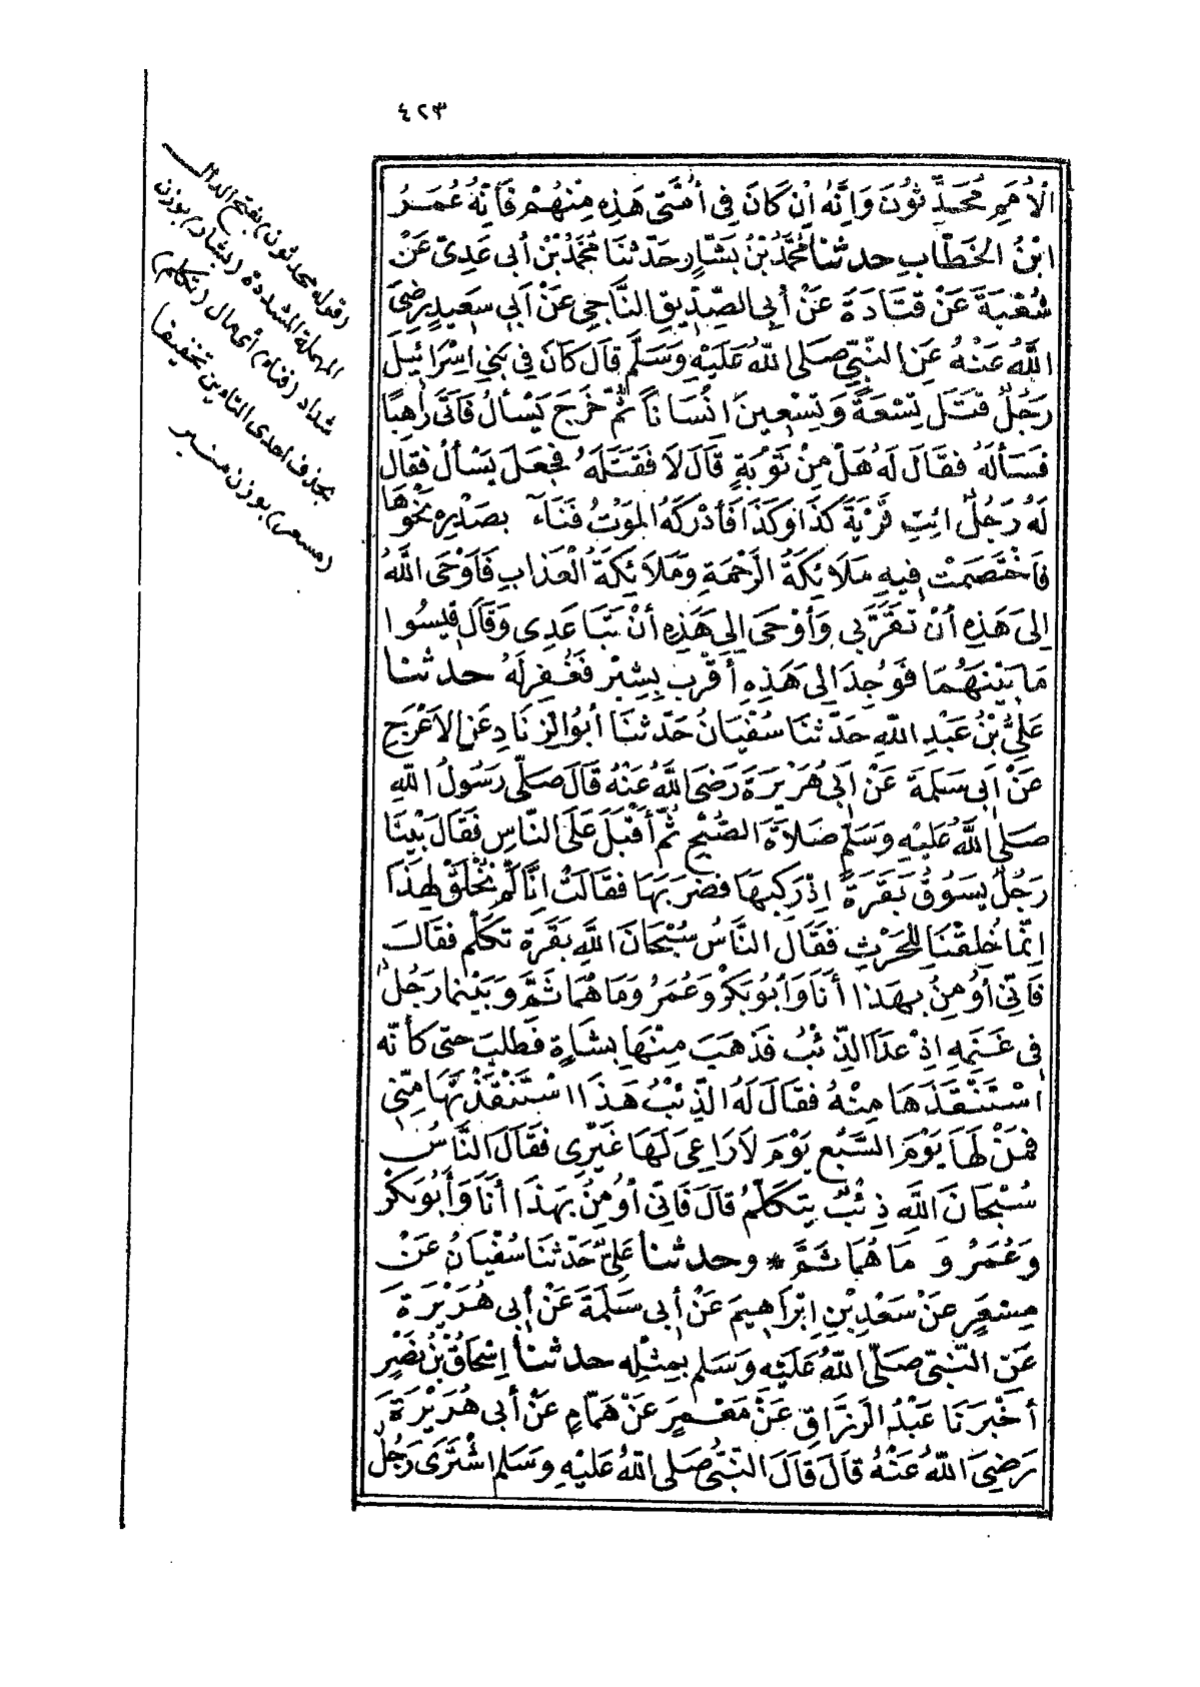 ٤٢٣
الْأُمَمِ مُحَدَّثُونَ وَإِنَّهُ إِنْ كَانَ فِي أُمَّتِي هَذِهِ مِنْهُمْ فَإِنَّهُ عُمَرُ
ابْنُ الْخَطَّابِ حدثنا مُحَمَّدُ بْنُ بَشَّارٍ حَدَّثَنَا مُحَمَّدُ بْنُ أَبِي عَدِيٍّ عَنْ
شُعْبَةَ عَنْ قَتَادَةَ عَنْ أَبِي الصِّدِّيقِ النَّاجِي عَنْ أَبِي سَعِيدٍ رَضِيَ
اللَّهُ عَنْهُ عَنِ النَّبِيِّ صَلَّى اللَّهُ عَلَيْهِ وَسَلَّمَ قَالَ كَانَ فِي بَنِي إِسْرَائِيلَ
رَجُلٌ قَتَلَ تِسْعَةً وَتِسْعِينَ إِنْسَانًا ثُمَّ خَرَجَ يَسْأَلُ فَأَتَى رَاهِبًا
فَسَأَلَهُ فَقَالَ لَهُ هَلْ مِنْ تَوْبَةٍ قَالَ لَا فَقَتَلَهُ فَجَعَلَ يَسْأَلُ فَقَالَ
لَهُ رَجُلٌ ائْتِ قَرْيَةَ كَذَا وَكَذَا فَأَدْرَكَهُ الْمَوْتُ فَنَاءَ بِصَدْرِهِ نَحْوَهَا
فَاخْتَصَمَتْ فِيهِ مَلَائِكَةُ الرَّحْمَةِ وَمَلَائِكَةُ الْعَذَابِ فَأَوْحَى اللَّهُ
إِلَى هَذِهِ أَنْ تَقَرَّبِي وَأَوْحَى إِلَى هَذِهِ أَنْ تَبَاعَدِي وَقَالَ قِيسُوا
مَا بَيْنَهُمَا فَوُجِدَ إِلَى هَذِهِ أَقْرَبَ بِشِبْرٍ فَغُفِرَ لَهُ حدثنا
عَلِيُّ بْنُ عَبْدِ اللَّهِ حَدَّثَنَا سُفْيَانُ حَدَّثَنَا أَبُو الزِّنَادِ عَنِ الْأَعْرَجِ
عَنْ أَبِي سَلَمَةَ عَنْ أَبِي هُرَيْرَةَ رَضِيَ اللَّهُ عَنْهُ قَالَ صَلَّى رَسُولُ اللَّهِ
صَلَّى اللَّهُ عَلَيْهِ وَسَلَّمَ صَلَاةَ الصُّبْحِ ثُمَّ أَقْبَلَ عَلَى النَّاسِ فَقَالَ بَيْنَا
رَجُلٌ يَسُوقُ بَقَرَةً إِذْ رَكِبَهَا فَضَرَبَهَا فَقَالَتْ إِنَّا لَمْ نُخْلَقْ لِهَذَا
إِنَّمَا خُلِقْنَا لِلْحَرْثِ فَقَالَ النَّاسُ سُبْحَانَ اللَّهِ بَقَرَةٌ تَكَلَّمُ فَقَالَ
فَإِنِّي أُومِنُ بِهَذَا أَنَا وَأَبُو بَكْرٍ وَعُمَرُ وَمَا هُمَا ثَمَّ وَبَيْنَمَا رَجُلٌ
فِي غَنَمِهِ إِذْ عَدَا الذِّئْبُ فَذَهَبَ مِنْهَا بِشَاةٍ فَطَلَبَ حَتَّى كَأَنَّهُ
اسْتَنْقَذَهَا مِنْهُ فَقَالَ لَهُ الذِّئْبُ هَذَا اسْتَنْقَذْتَهَا مِنِّي
فَمَنْ لَهَا يَوْمَ السَّبُعِ يَوْمَ لَا رَاعِيَ لَهَا غَيْرِي فَقَالَ النَّاسُ
سُبْحَانَ اللَّهِ ذِئْبٌ يَتَكَلَّمُ قَالَ فَإِنِّي أُومِنُ بِهَذَا أَنَا وَأَبُو بَكْرٍ
وَعُمَرُ وَمَا هُمَا ثَمَّ * وحدثنا عَلِيٌّ حَدَّثَنَا سُفْيَانُ عَنْ
مِسْعَرٍ عَنْ سَعْدِ بْنِ إِبْرَاهِيمَ عَنْ أَبِي سَلَمَةَ عَنْ أَبِي هُرَيْرَةَ
عَنِ النَّبِيِّ صَلَّى اللَّهُ عَلَيْهِ وَسَلَّمَ بِمِثْلِهِ حدثنا إِسْحَاقُ بْنُ نَصْرٍ
أَخْبَرَنَا عَبْدُ الرَّزَّاقِ عَنْ مَعْمَرٍ عَنْ هَمَّامٍ عَنْ أَبِي هُرَيْرَةَ
رَضِيَ اللَّهُ عَنْهُ قَالَ قَالَ النَّبِيُّ صَلَّى اللَّهُ عَلَيْهِ وَسَلَّمَ اشْتَرَى رَجُلٌ
(قوله محدثون) بفتح الدال
المهملة المشددة (بشار) بوزن
شداد (فناء) أي مال (تكلم)
بحذف احدى التاءين تخفيفا
(مسعر) بوزن منبر